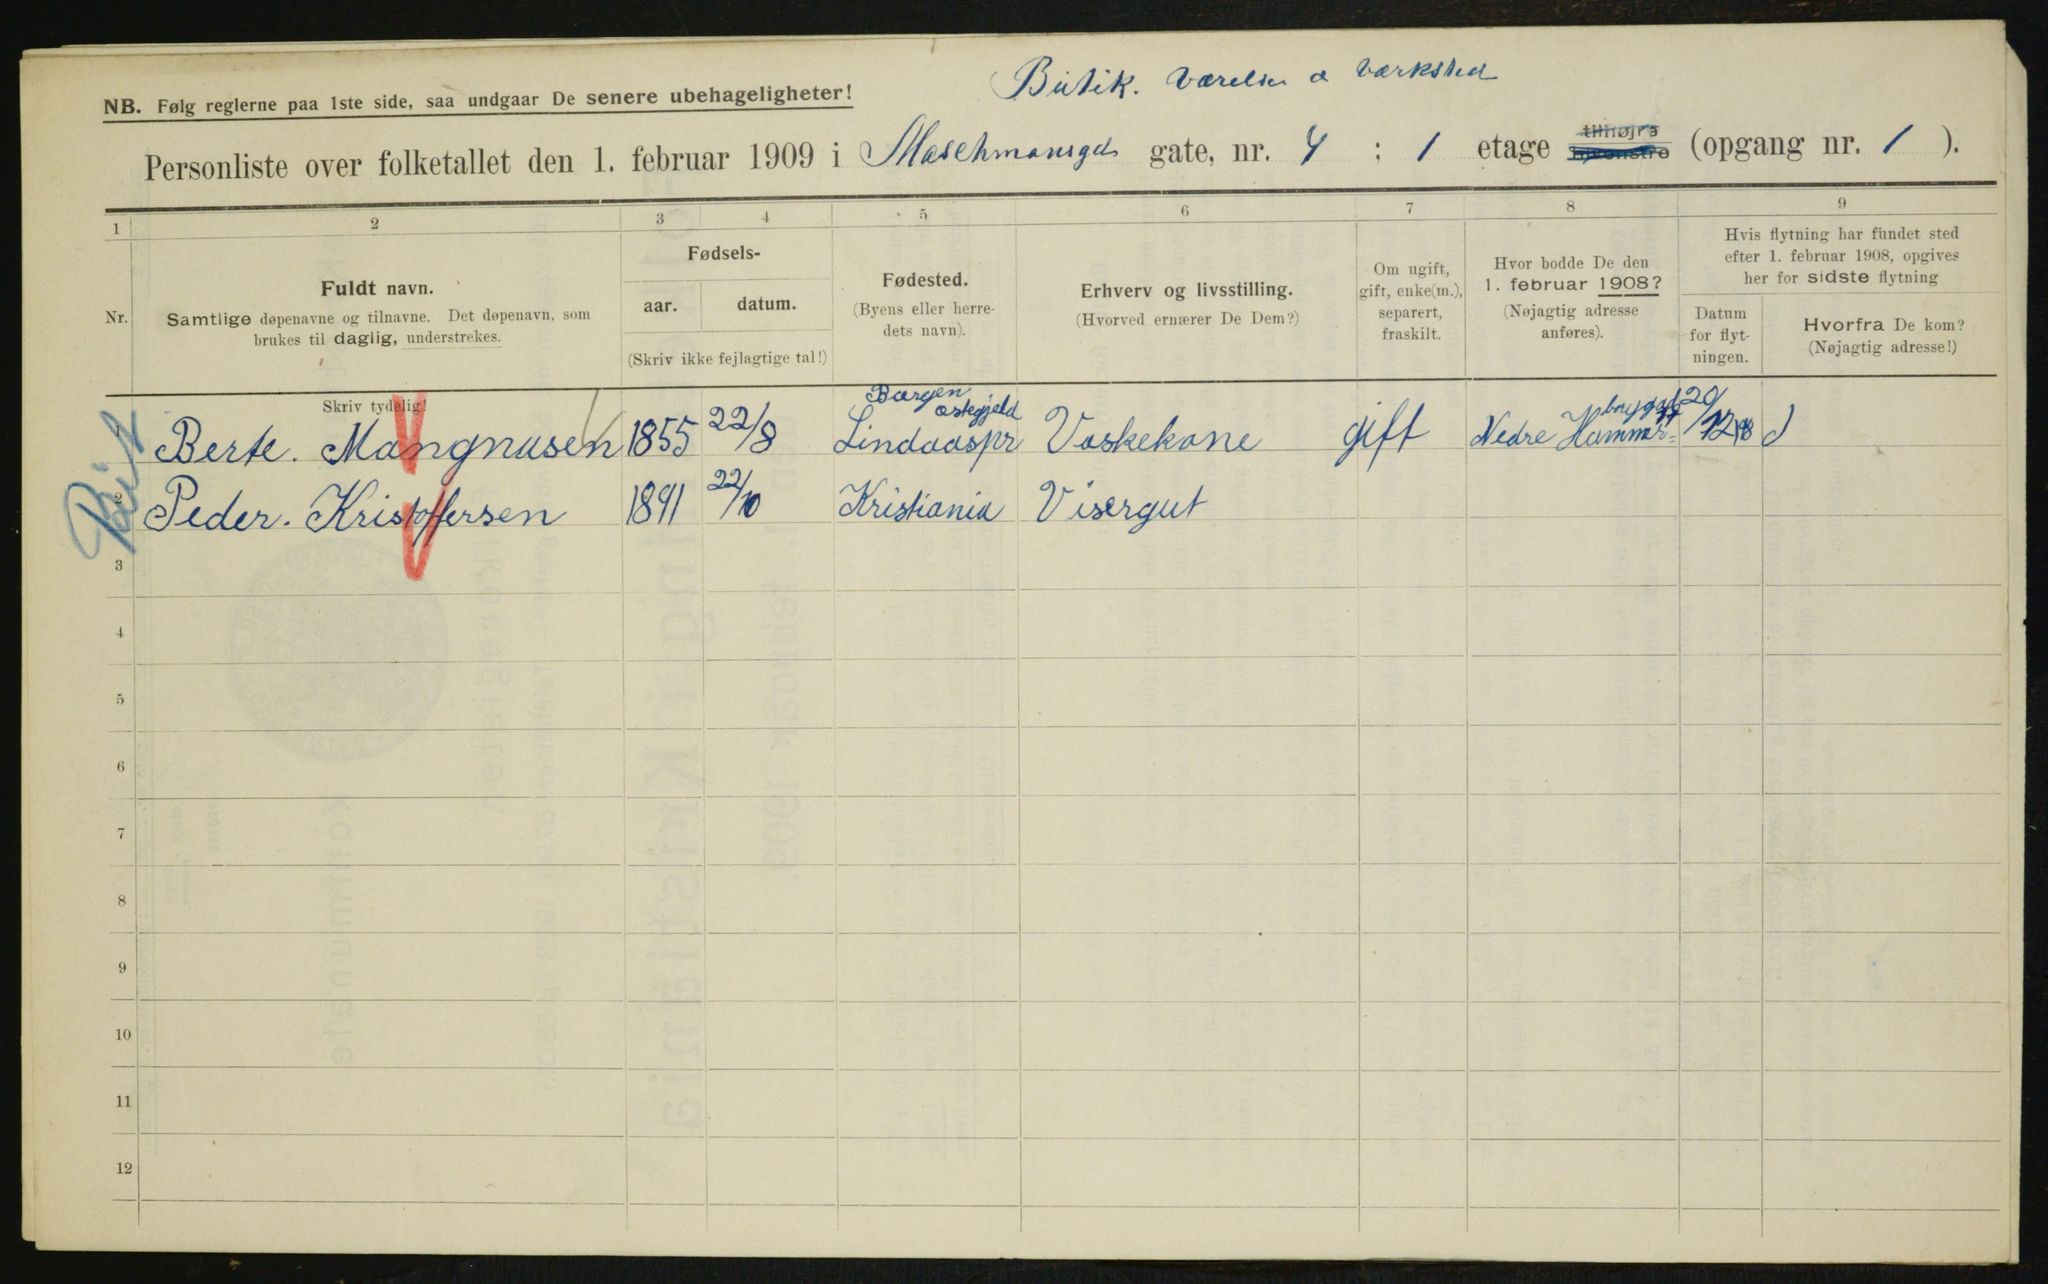 Butik. Værelse & Værksted
NB. Følg reglerne paa 1ste side, saa undgaar De senere ubehageligheter!
Personliste over folketallet den 1. februar 1909 i Maschmansgds gate, nr. 4 : 1 etage tilhøjre ilvenstre (opgang nr. 1 ).
1 2 3 4 5 6 7 8 9
Nr.
Fuldt navn.
Samtlige døpenavne og tilnavne. Det døpenavn, som
brukes til daglig, understrekes.
Skriv tydelig!
Fødsels-
aar. datum.
(Skriv ikke fejlagtige tal!)
Fødested.
(Byens eller herre-
dets navn).
Erhverv og livsstilling.
(Hvorved ernærer De Dem?)
Om ugift,
gift, enke(m.),
separert,
fraskilt.
Hvor bodde De den
1. februar 1908?
(Nøjagtig adresse
anføres).
Hvis flytning har fundet sted
efter 1. februar 1908, opgives
her for sidste flytning
Datum
for flyt-
ningen.
Hvorfra De kom?
(Nøjagtig adresse!)
Berte. Mangnusen 1855 22/8 Bærgen Lindaaspr æstegjeld Vaskekone gift Nedre Hammer=
2 Peder. Kristoffersen 1891 22/10 Kristiania Visergut
3
4
5
6
7
8
9
10
11
12